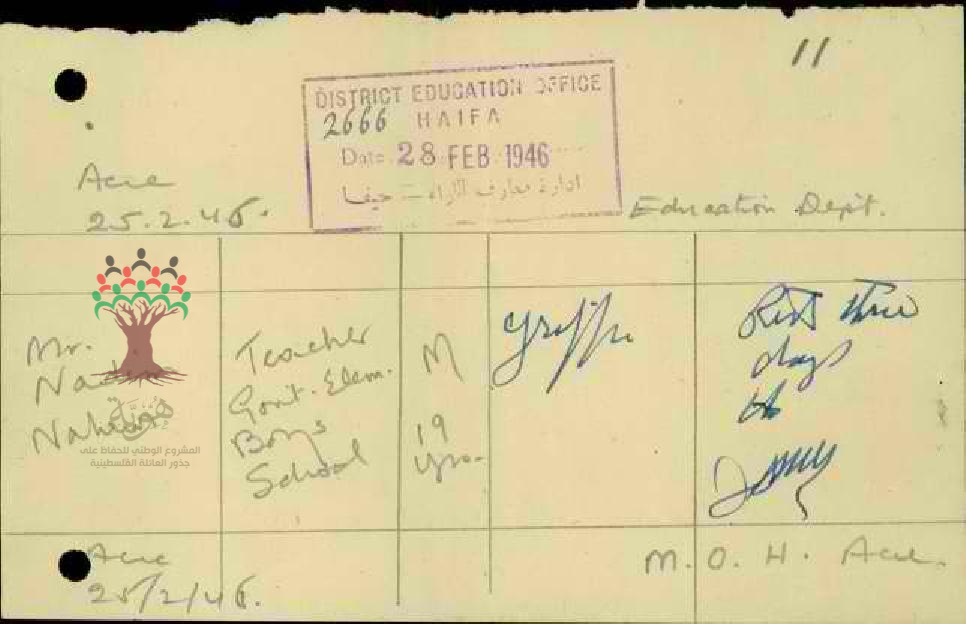 11
DISTRICT EDUCATION OFFICE
2666 HAIFA
Date 28 FEB 1946
ادارة معارف اللواء – حيفا
Acre
25.2.46.
Education Dept.
Mr.
Teacher
Govt. Elem.
Boys
School
M
19
yrs.
grippe
Rest three
days
هوية
المشروع الوطني للحفاظ على
جذور العائلة الفلسطينية
Acre
25/2/46.
M. O. H. Acre.